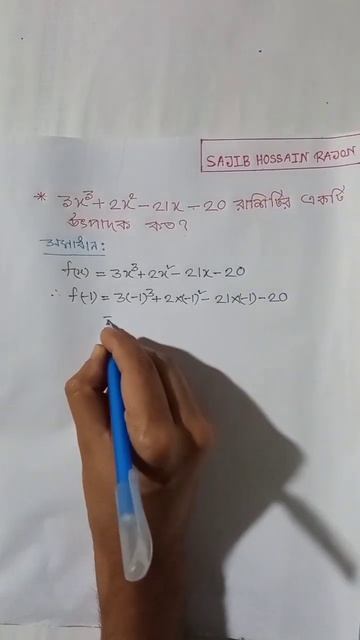 SAJIB HOSSAIN RAJON
* 3x³ + 2x² - 21x - 20 রাশিটির একটি
উৎপাদক কত?
সমাধান:
f(x) = 3x³ + 2x² - 21x - 20
∴ f(-1) = 3(-1)³ + 2×(-1)² - 21×(-1) - 20
=